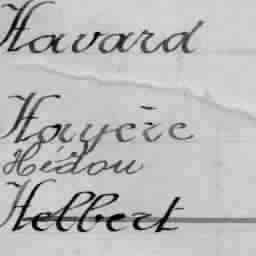 Havard
Hayère
Hédou
Helbert